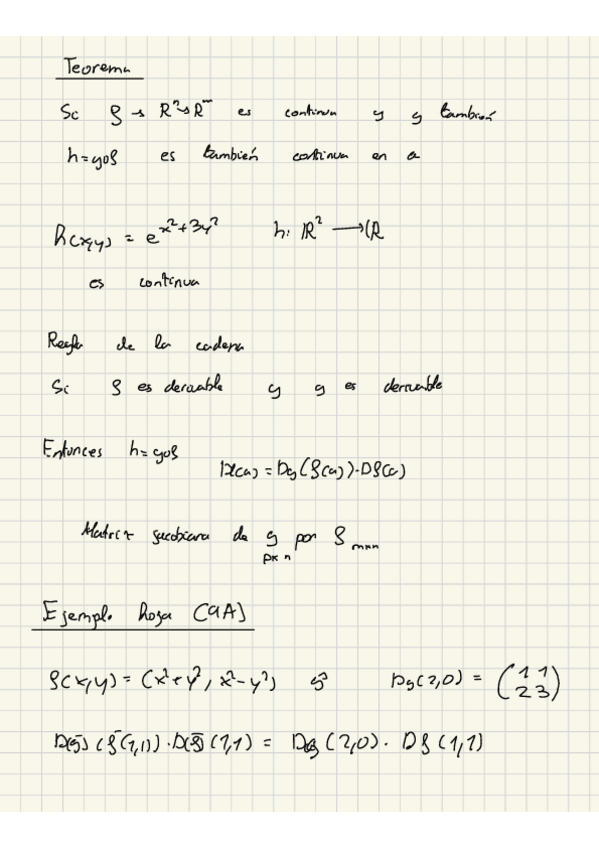 Teorema
Si f → R^n → R^m es continua y g también
h=g∘f es también continua en a
h(x,y) = e^{x²+3y²} h: R² → R
es continua
Regla de la cadena
Si f es derivable y g es derivable
Entonces h=g∘f
Dh(a) = Dg(f(a))·Df(a)
Matriz jacobiana de g por f
p×n m×n
Ejemplo hoja (9A)
f(x,y) = (x²+y², x²-y²) g Dg(2,0) = (1 1
2 3)
D(g)(f(1,1))·D(f)(1,1) = Dg(2,0)·Df(1,1)